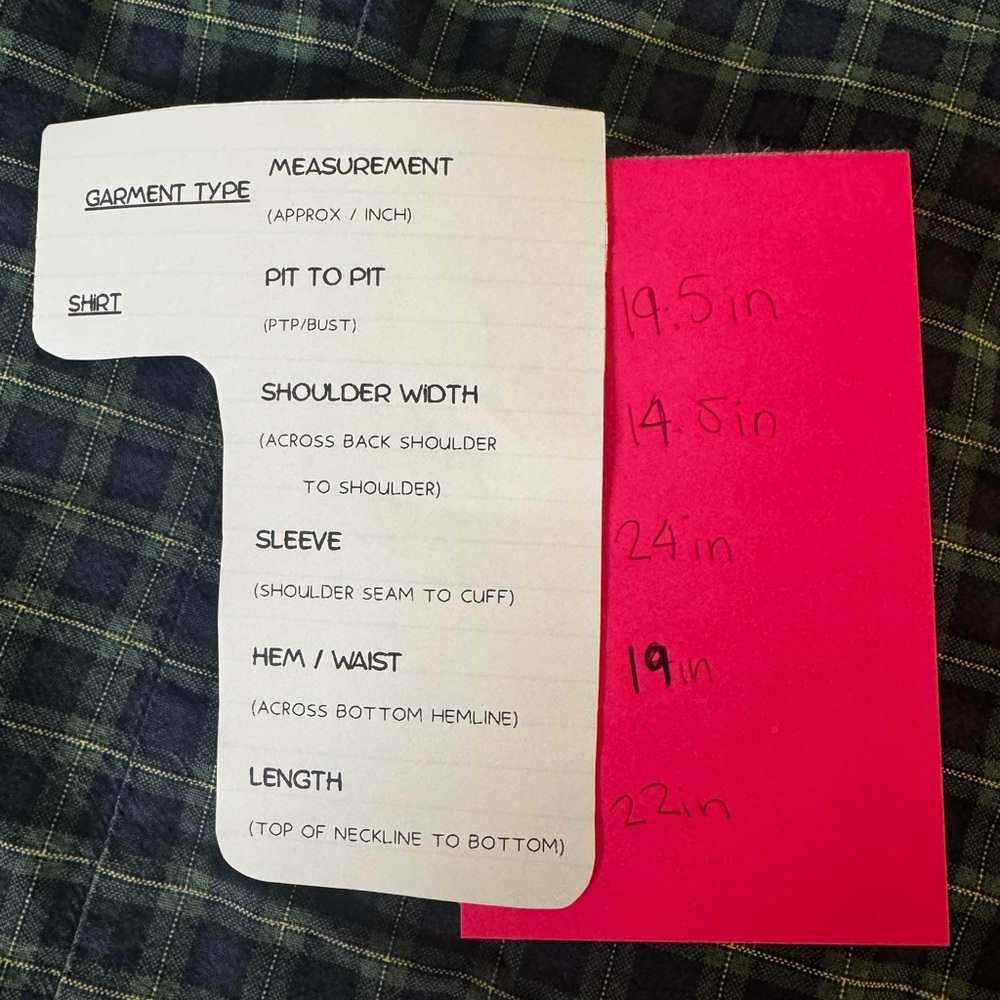 GARMENT TYPE
MEASUREMENT
(APPROX / INCH)
SHIRT
PIT TO PIT
(PTP/BUST)
19.5in
SHOULDER WIDTH
(ACROSS BACK SHOULDER
TO SHOULDER)
14.5in
SLEEVE
(SHOULDER SEAM TO CUFF)
24in
HEM / WAIST
(ACROSS BOTTOM HEMLINE)
19in
LENGTH
(TOP OF NECKLINE TO BOTTOM)
22in